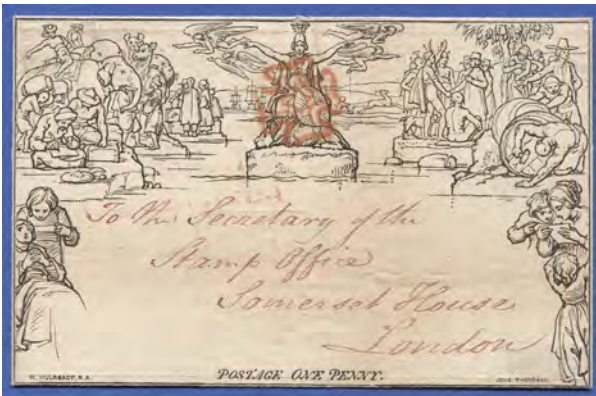 To the Secretary of the
Stamp Office
Somerset House
London
W. MULREADY, R.A.
POSTAGE ONE PENNY.
JOHN THOMPSON